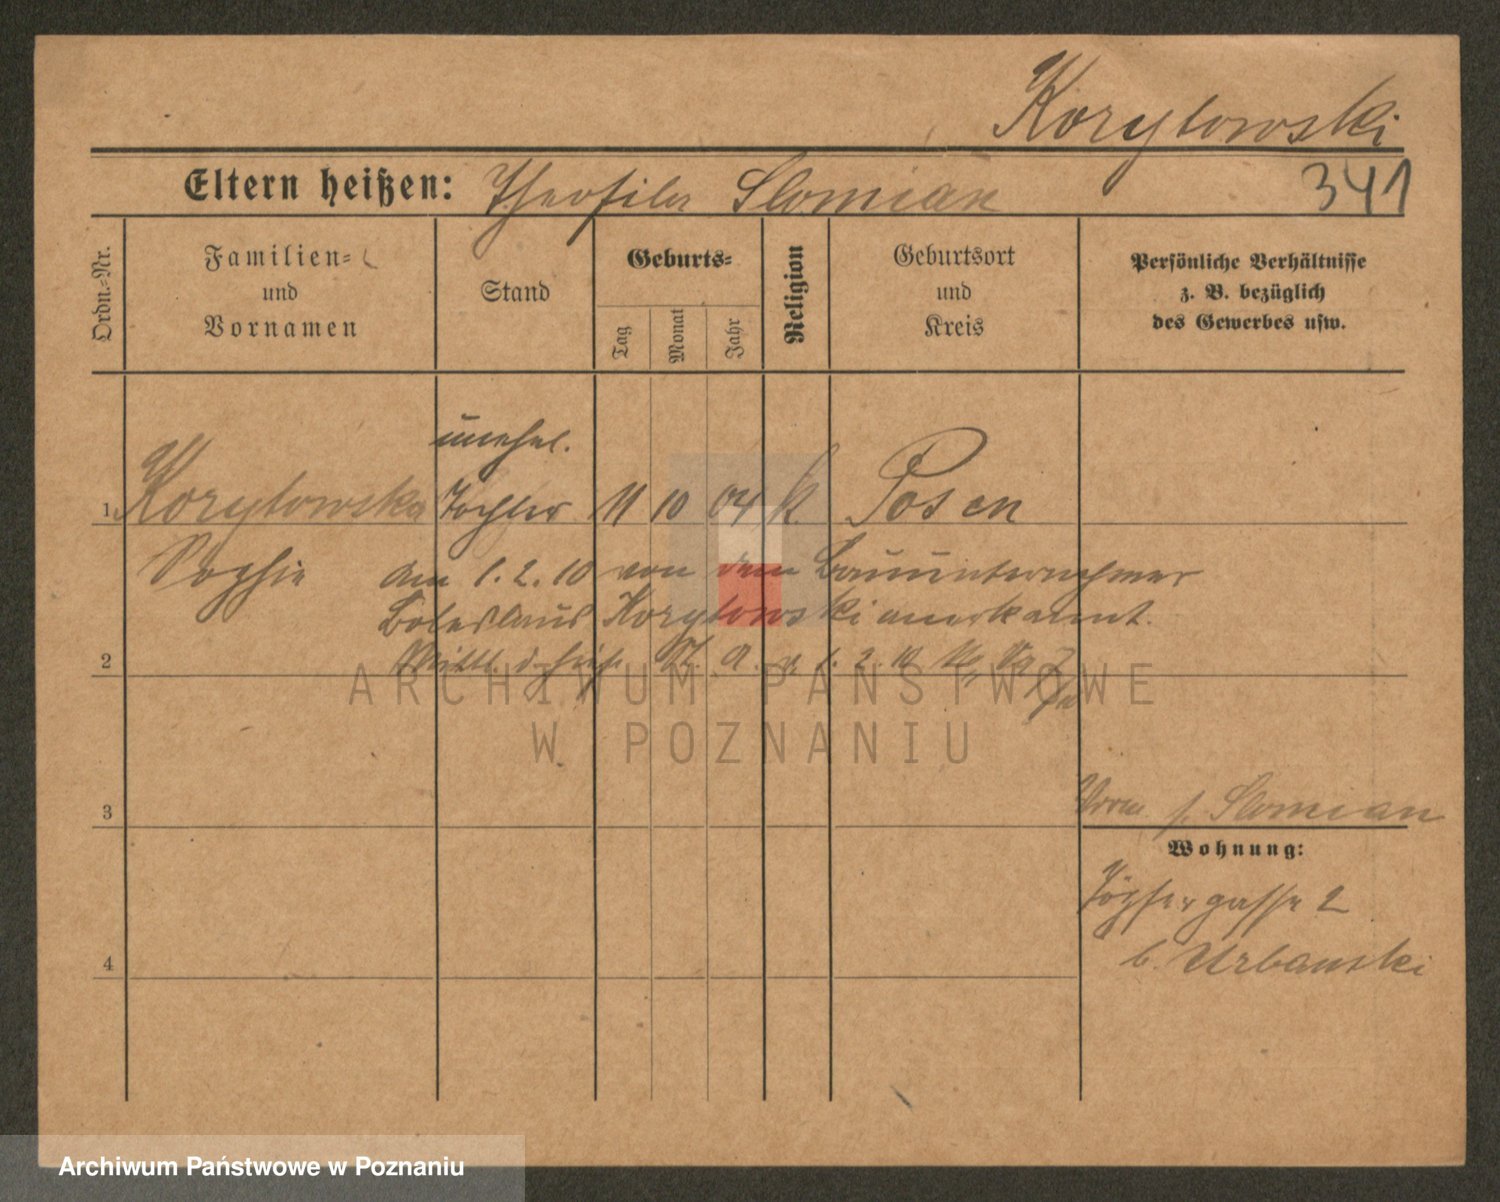 Korytowski
Eltern heißen: Theofila Slomian 341
Ordn.-Nr.
Familien- und Vornamen
Stand
Geburts-
Tag Monat Jahr
Religion
Geburtsort und Kreis
Persönliche Verhältnisse
z. B. bezüglich
des Gewerbes usw.
unehel.
1 Korytowska Tochter 11 10 04 k Posen
Sophie am 1.2.10 von dem Bauunternehmer
Boleslaus Korytowski anerkannt.
2 Mittl. d. St. A. v. 1.2.10
3
Vorm. f. Slomian
Wohnung:
Töpfergasse 2
4
b. Urbanski
ARCHIWUM PAŃSTWOWE
W POZNANIU
Archiwum Państwowe w Poznaniu